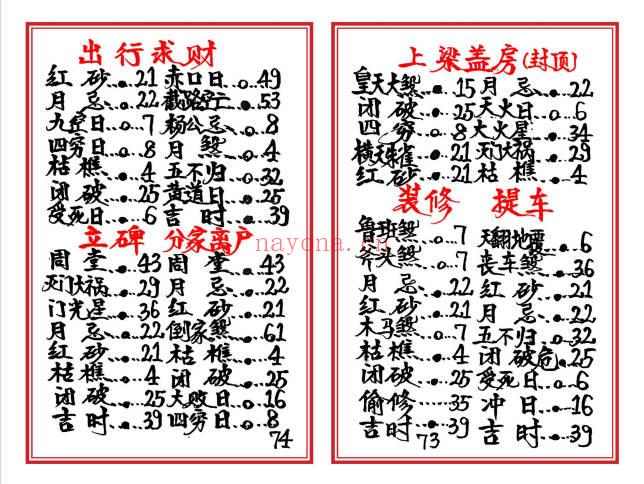 出行求财
红砂...21 赤口日...49
月忌...22 截路空亡...53
九空日...7 杨公忌...8
四穷日...8 月煞...4
枯樵...4 五不归...32
闭破...25 黄道日...25
受死日...6 吉时...39
立碑 分家离户
周堂...43 周堂...43
灭门大祸...29 月忌...22
门光星...36 红砂...21
月忌...22 倒家煞...61
红砂...21 枯樵...4
枯樵...4 闭破...25
闭破...25 大败日...16
吉时...39 四穷日...8
74
nayona.cn
上梁盖房(封顶)
皇天大煞...15 月忌...22
闭破...25 天火日...6
四穷...8 大火星...34
横天朱雀...21 灭门大祸...29
红砂...21 枯樵...4
装修 提车
鲁班煞...7 天翻地覆...6
斧头煞...7 丧车煞...36
月忌...22 红砂...21
红砂...21 月忌...22
木马煞...7 五不归...32
枯樵...4 闭破危...25
闭破...25 受死日...6
偷修...35 冲日...16
吉时...39 吉时...39
73